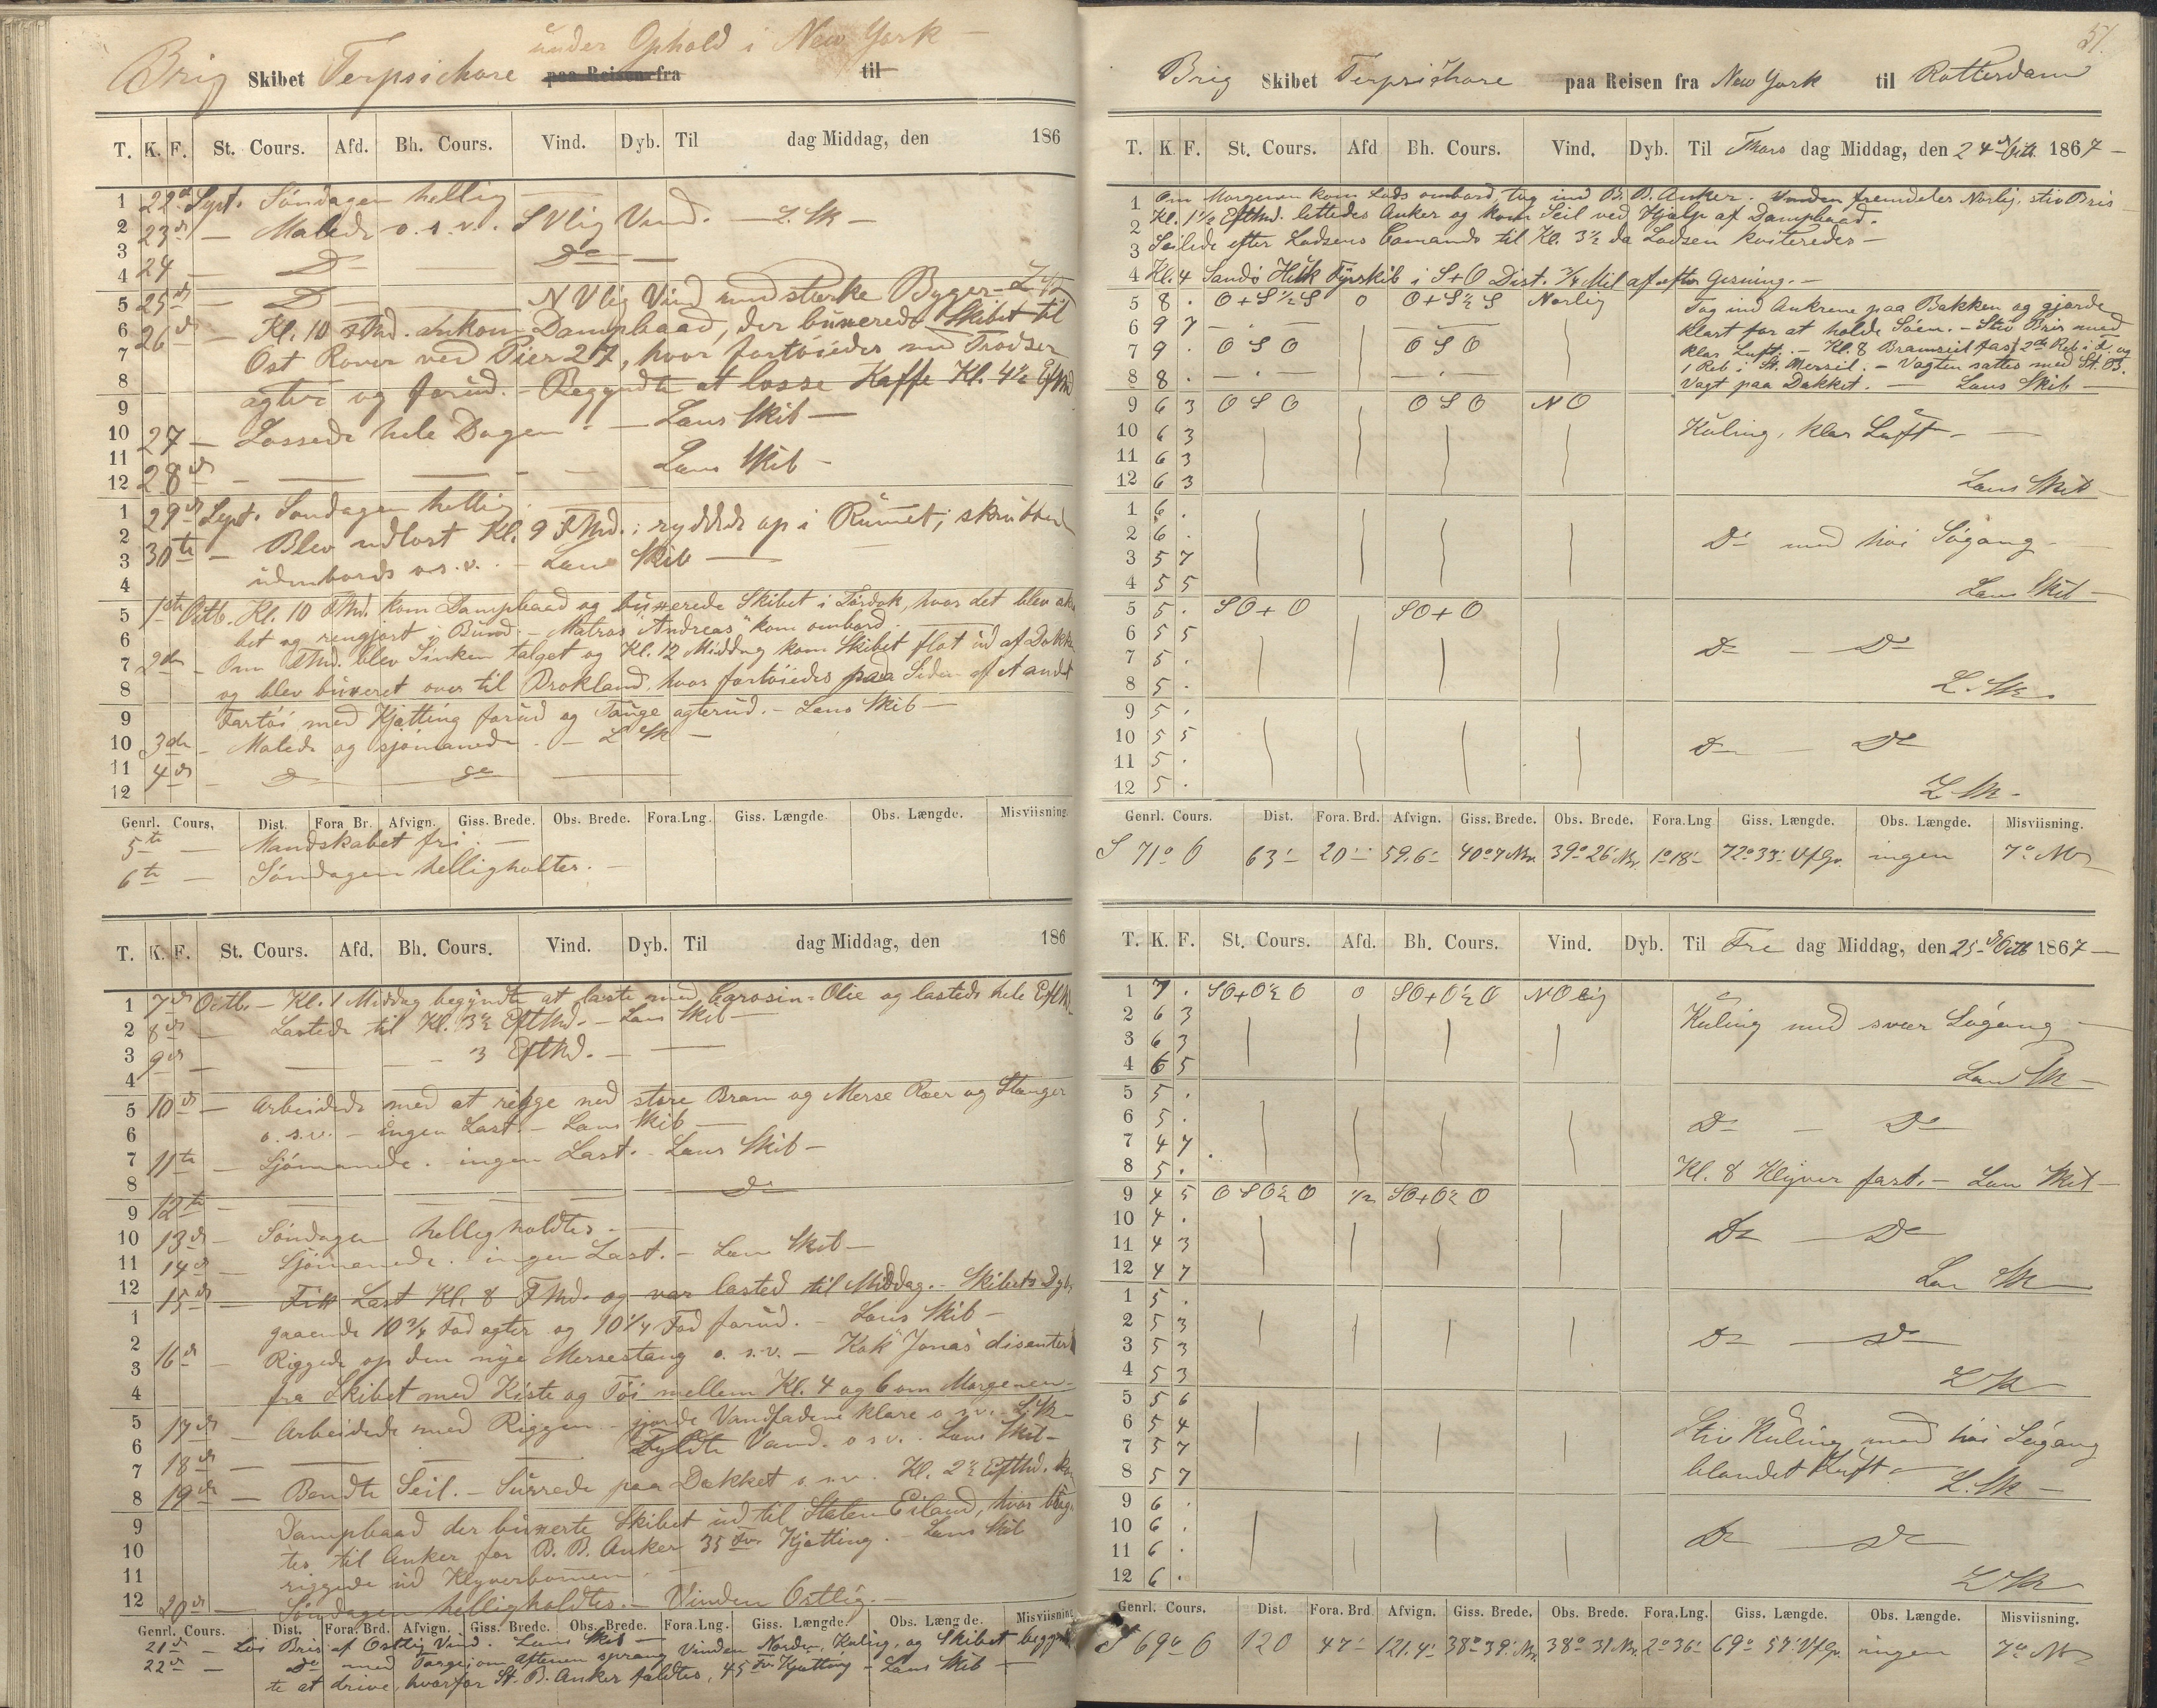 under Ophold i New York —
Brig Skibet Terpsichore paa Reisen fra til
T. K. F. St. Cours. Afd. Bh. Cours. Vind. Dyb. Til dag Middag, den 186
22d Sept. Söndagen hellig —
23d — Malede o. s. v. SVlig Vind. — L. Sk —
24 — Do — Do —
25d — Do NVlig Vind med stærke Byger — L. Sk
26d — Kl. 10 FMd. ankom Dampbaad, der buxerede Skibet til
Ost Rover ved Pier 27, hvor fortöiedes med Trodser
agter og forud. — Begyndte at losse Kaffe Kl. 4½ EftMd
27 — Lossede hele Dagen. — Lens Skib —
28d — — — Lens Skib —
29d Sept. Söndagen hellig
30te — Blev udlost Kl. 9 FMd.; ryddede op i Rumet; skrubbed
udenbords o. s. v. — Lens Skib —
1ste Octb. Kl. 10 FMd. kom Dampbaad og buxerede Skibet i Tördok, hvor det blev
bet og rengjort i Bund. — Matros "Andreas" kom ombord.
2den — Om FMd. blev Sinken talget og Kl. 12 Middag kom Skibet flot ud af Dokke
og blev buxeret over til Brokland, hvor fortöiedes paa Siden af et andet
Fartöi med Kjætting forud og Touge agterud. — Lens Skib —
3die — Malede og sjömanede. — L Sk —
4de — Do — Do —
Genrl. Cours, Dist. Fora Br. Afvign. Giss. Brede. Obs. Brede. Fora.Lng. Giss. Længde. Obs. Længde. Misviisning
5te — Mandskabet fri. —
6te — Söndagen helligholtes. —
T. K. F. St. Cours. Afd. Bh. Cours. Vind. Dyb. Til dag Middag, den 186
7de Octb. — Kl. 1 Middag begyndte at laste med Carosin-Olie og lastede hele EftM
8de — Lastede til Kl. 3½ EftMd. — Lens Skib —
9de — — — 3 EftMd. — —
10de — Arbeidede med at rigge ned store Bram og Merse Raer og Stænger
o. s. v. — ingen Last. — Lens Skib —
11te — Sjömanede. — ingen Last. — Lens Skib —
12te — — — Do
13de — Söndagen helligholdtes. —
14de — Sjömanede. ingen Last. — Lens Skib —
15de — Fik Last Kl. 8 FMd. og var lasted til Middag. — Skibets Dyb
gaaende 10¾ Fod agter og 10¼ Fod forud. — Lens Skib —
16de — Riggede op den nye Mersestang o. s. v. — Kok "Jonas" disenterede
fra Skibet med Kiste og Töi mellem Kl. 4 og 6 om Morgenen —
17de — Arbeidede med Riggen — gjorde Vandfadene klare o. s. v. — L. Sk —
18de — — — Fyldte Vand. o s v. Lens Skib —
19de — Bendte Seil. — Surrede paa Dækket o. s. v. Kl. 2½ EftMd. kom
Dampbaad der buxerte Skibet ud til Staten Eiland, hvor lag
tes til Anker for B. B. Anker 35 Fv. Kjætting. — Lens Skib
riggede ud Klyverbomen. —
20de — Söndagen helligholdtes. — Vinden Ostlig. —
Genrl. Cours. Dist. Fora. Brd. Afvign. Giss. Brede. Obs. Brede. Fora.Lng. Giss. Længde. Obs. Længde. Misviisning
21de — Löi Bris af Ostlig Vind. Lens Skib —
22de — Do med Torge; om Aftenen sprang Vinden Norden, Kuling, og Skibet begynd
te at drive, hvorfor St. B. Anker faldtes, 45 Fv. Kjætting — Lens Skib —
51.
Brig Skibet Terpsichore paa Reisen fra New York til Rotterdam
T. K F. St. Cours. Afd Bh. Cours. Vind. Dyb. Til Thors dag Middag, den 24de Octb. 1867 —
1 Om Morgenen kom Lods ombord, tog ind B. B. Anker. Vinden fremdeles Norlig, stiv Bris —
2 Kl. 1½ EftMd. lettedes Anker og kom Seil ved Hjælp af Dampbaad.
3 Seilede efter Lodsens Comando til Kl. 3½ da Lodsen kviteredes —
4 Kl. 4 Sandö Huk Fyrskib i S+O Dist. ¾ Mil af efter Gisning. —
5 8 . O+S½S 0 O+S½S Norlig Tog ind Ankrene paa Bakken og gjorde
6 9 7 — . — — . — klart for at holde Söen. — Stiv Bris med
7 9 . OSO OSO klar Luft. — Kl. 8 Bramseil fast 2de Reb i F. og
8 8 . — . — — . — 1 Reb i St. Mersseil. — Vagten sattes med St. B.
Vagt paa Dækket. — Lens Skib —
9 6 3 OSO OSO NO
10 6 3 Kuling, klar Luft —
11 6 3
12 6 3 Lens Skib —
1 6 .
2 6 . Do med höi Sögang —
3 5 7
4 5 5 Lens Skib —
5 5 . SO+O SO+O
6 5 5 Do — Do
7 5 .
8 5 . L. Sk —
9 5 .
10 5 5 Do — Do
11 5 .
12 5 . L. Sk —
Genrl. Cours. Dist. Fora. Brd. Afvign. Giss. Brede. Obs. Brede. Fora.Lng Giss. Længde. Obs. Længde. Misviisning.
S 71° O 63' 20' 59.6' 40°7' Nr. 39°26' Nr. 1°18' 72°33' V.f.Gr. ingen 7° NV
T. K. F. St. Cours. Afd. Bh. Cours. Vind. Dyb. Til Fre dag Middag, den 25de Octb 1867 —
1 7 . SO+O½O 0 SO+O½O NOlig
2 6 3 Kuling med svær Sögang —
3 6 3
4 6 5 Lens Sk —
5 5 .
6 5 . Do — Do
7 4 7
8 5 . Kl. 8 Klyver fast. — Lens Skib —
9 4 5 OSO½O ½ SO+O½O
10 4 . Do — Do
11 4 3
12 4 7 Len Sk —
1 5 .
2 5 3 Do — Do
3 5 3
4 5 3 L Sk
5 5 6
6 5 4 Stiv Kuling med höi Sögang
7 5 7 blandet Luft —
8 5 7 L. Sk —
9 6 .
10 6 . Do — Do
11 6 .
12 6 . L Sk
Genrl. Cours. Dist. Fora. Brd. Afvign. Giss. Brede. Obs. Brede. Fora.Lng. Giss. Længde. Obs. Længde. Misviisning.
S 69° O 120 47' 121.4' 38°39' Nr. 38°31' Nr. 2°36' 69°57' V.f.Gr. ingen 7° NV